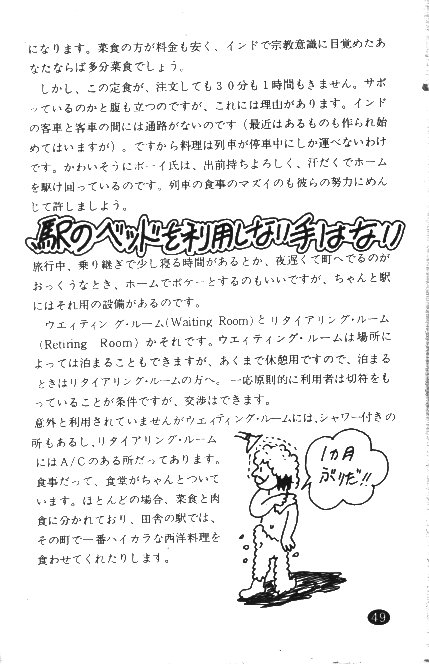 になります。菜食の方が料金も安く、インドで宗教意識に目覚めたあ
なたならば多分菜食でしょう。
しかし、この定食が、注文しても３０分も１時間もきません。サボ
っているのかと腹も立つのですが、これには理由があります。インド
の客車と客車の間には通路がないのです（最近はあるものも作られ始
めてはいますが）。ですから料理は列車が停車中にしか運べないわけ
です。かわいそうにボーイ氏は、出前持ちよろしく、汗だくでホーム
を駆け回っているのです。列車の食事のマズイのも彼らの努力にめん
じて許しましよう。
駅のベッドを利用しない手はない
旅行中、乗り継ぎで少し寝る時間があるとか、夜遅くて町へでるのが
おっくうなとき、ホームでボケーとするのもいいですが、ちゃんと駅
にはそれ用の設備があるのです。
ウエィティング・ルーム(Waiting Room)とリタイアリング・ルーム
(Retiring Room) がそれです。ウエィティング・ルームは場所に
よっては泊まることもできますが、あくまで休憩用ですので、泊まる
ときはリタイアリング・ルームの方へ。一応原則的に利用者は切符をも
っていることが条件ですが、交渉はできます。
意外と利用されていませんがウエィティング・ルームには、シャワー付きの
所もあるし、リタイアリング・ルーム
にはA/Cのある所だってあります。
食事だって、食堂がちゃんとついて
います。ほとんどの場合、菜食と肉
食に分かれており、田舎の駅では、
その町で一番ハイカラな西洋料理を
食わせてくれたりします。
1カ月
ぶりだ!!
49